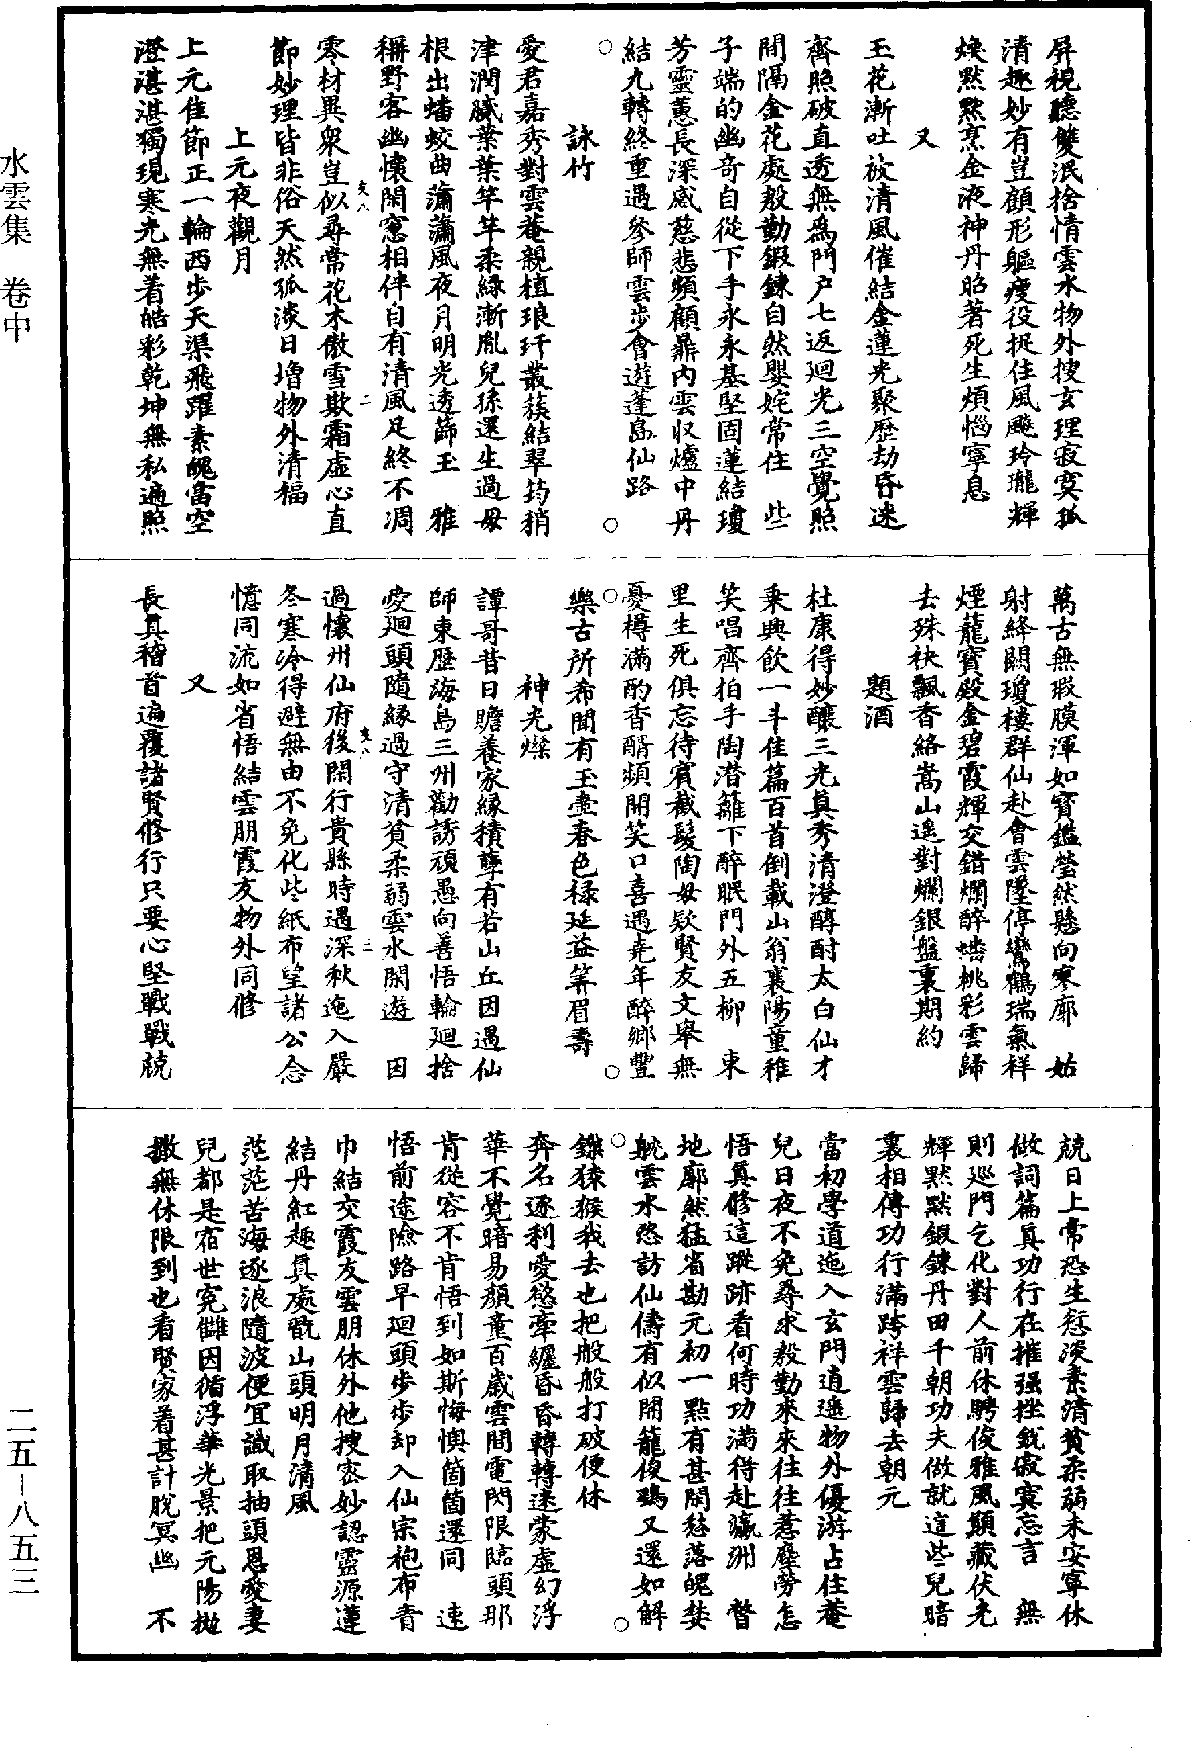 屏視聽雙泯捨情雲水物外搜玄理寂寞孤
清趣妙有豈顧形軀瘦役捉住風颷玲瓏輝
煥默默烹金液神丹昭著死生煩惱寧息
又
玉花漸吐被清風催結金蓮光聚歷劫昏迷
齊照破直透無為門户七返迴光三空覺照
間隔金花處殷勤鍛鍊自然嬰姹常住　些
子端的幽奇自從下手永永基堅固蓮結瓊
芳靈蕙長深感慈悲頻顧鼎內雲収爐中丹
結九轉終重遇參師雲步會遊蓬島仙路
詠竹
愛君嘉秀對雲菴親植琅玕叢簇結翠筠稍
津潤膩葉葉竿竿柔緑漸胤兒孫還生過母
根出蟠蛟曲瀟瀟風夜月明光透篩玉　雅
稱野客幽懷閑窻相伴自有清風足終不凋
零材異衆豈似尋常花木傲雪欺霜虛心直
節妙理皆非俗天然孤淡日增物外清福
上元夜觀月
上元佳節正一輪西步天渠飛躍素魄當空
澄湛湛獨現寒光無着皓彩乾坤無私遍照
萬古無瑕膜渾如寶鑑瑩然懸向寒廓　姑
射絳闕瓊樓群仙赴會雲墜停鸞鶴瑞氣祥
煙蘢寶殿金碧霞輝交錯爛醉蟠桃彩雲歸
去殊袂飄香絡嵩山遙對爛銀盤裏期約
題酒
杜康得妙釀三光真秀清澄醇酎太白仙才
乘興飲一斗佳篇百首倒載山翁襄陽童稚
笑唱齊拍手陶潛籬下醉眠門外五柳　東
里生死俱忘待賓截髮陶母欵賢友文舉無
憂樽滿酌香醑頻開笑口喜遇堯年醉鄉豐
樂古所希聞有玉壺春色禄延益筭眉壽
神光燦
譚哥昔日贍養家緣積孽有若山丘因遇仙
師東歷海島三州勸誘頑愚向善悟輪迴捨
愛迴頭隨緣過守清貧柔弱雲水閑遊　因
過懷州仙府後閑行貴縣時遇深秋迤入嚴
冬寒冷得避無由不免化些紙布望諸公念
憶同流如省悟結雲朋霞友物外同修
又
長真稽首遍覆諸賢修行只要心堅戰戰兢
兢日上常恐生愆淡素清貧柔弱未安寧休
做詞篇真功行在摧强挫銳寂寞忘言　無
則巡門乞化對人前休騁俊雅風顛藏伏光
輝默默鍛鍊丹田千朝功夫做就這些兒暗
裏相傳功行滿跨祥雲歸去朝元
當初學道迤入玄門逍遥物外優游占住菴
兒日夜不免尋求殷勤來來往往惹塵勞怎
悟真修這蹤跡看何時功滿得赴瀛洲　瞥
地廓然猛省勘元初一點有甚閑愁落魄㛐
躭雲水恣訪仙儔有似開籠俊鷂又還如解
鏁猿猴我去也把般般打破便休
奔名逐利愛慾牽纏昏昏轉轉迷蒙虛幻浮
華不覺暗易顔童百歲雲間電閃限臨頭那
肯從容不肯悟到如斯悔懊箇箇還同　速
悟前途險路早迴頭步步却入仙宗袍布青
巾結交霞友雲朋休外他搜密妙認靈源蓮
結丹紅趣真處翫山頭明月清風
茫茫苦海逐浪隨波便宜識取抽頭恩愛妻
兒都是宿世冤讎因循浮華光景把元陽拋
撒無休限到也看賢家着甚計脫冥幽　不
水雲集　卷中
二五—八五三